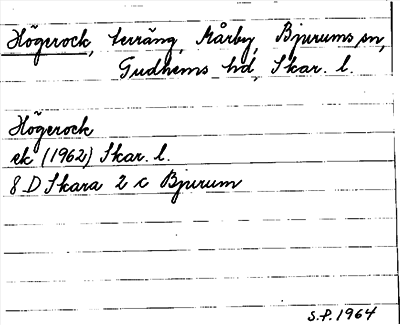 Högerock, terräng, Kårby, Bjurums sn,
Gudhems hd, Skar. l.
Högerock
ek (1962) Skar. l.
8 D Skara 2 c Bjurum
S.P. 1964